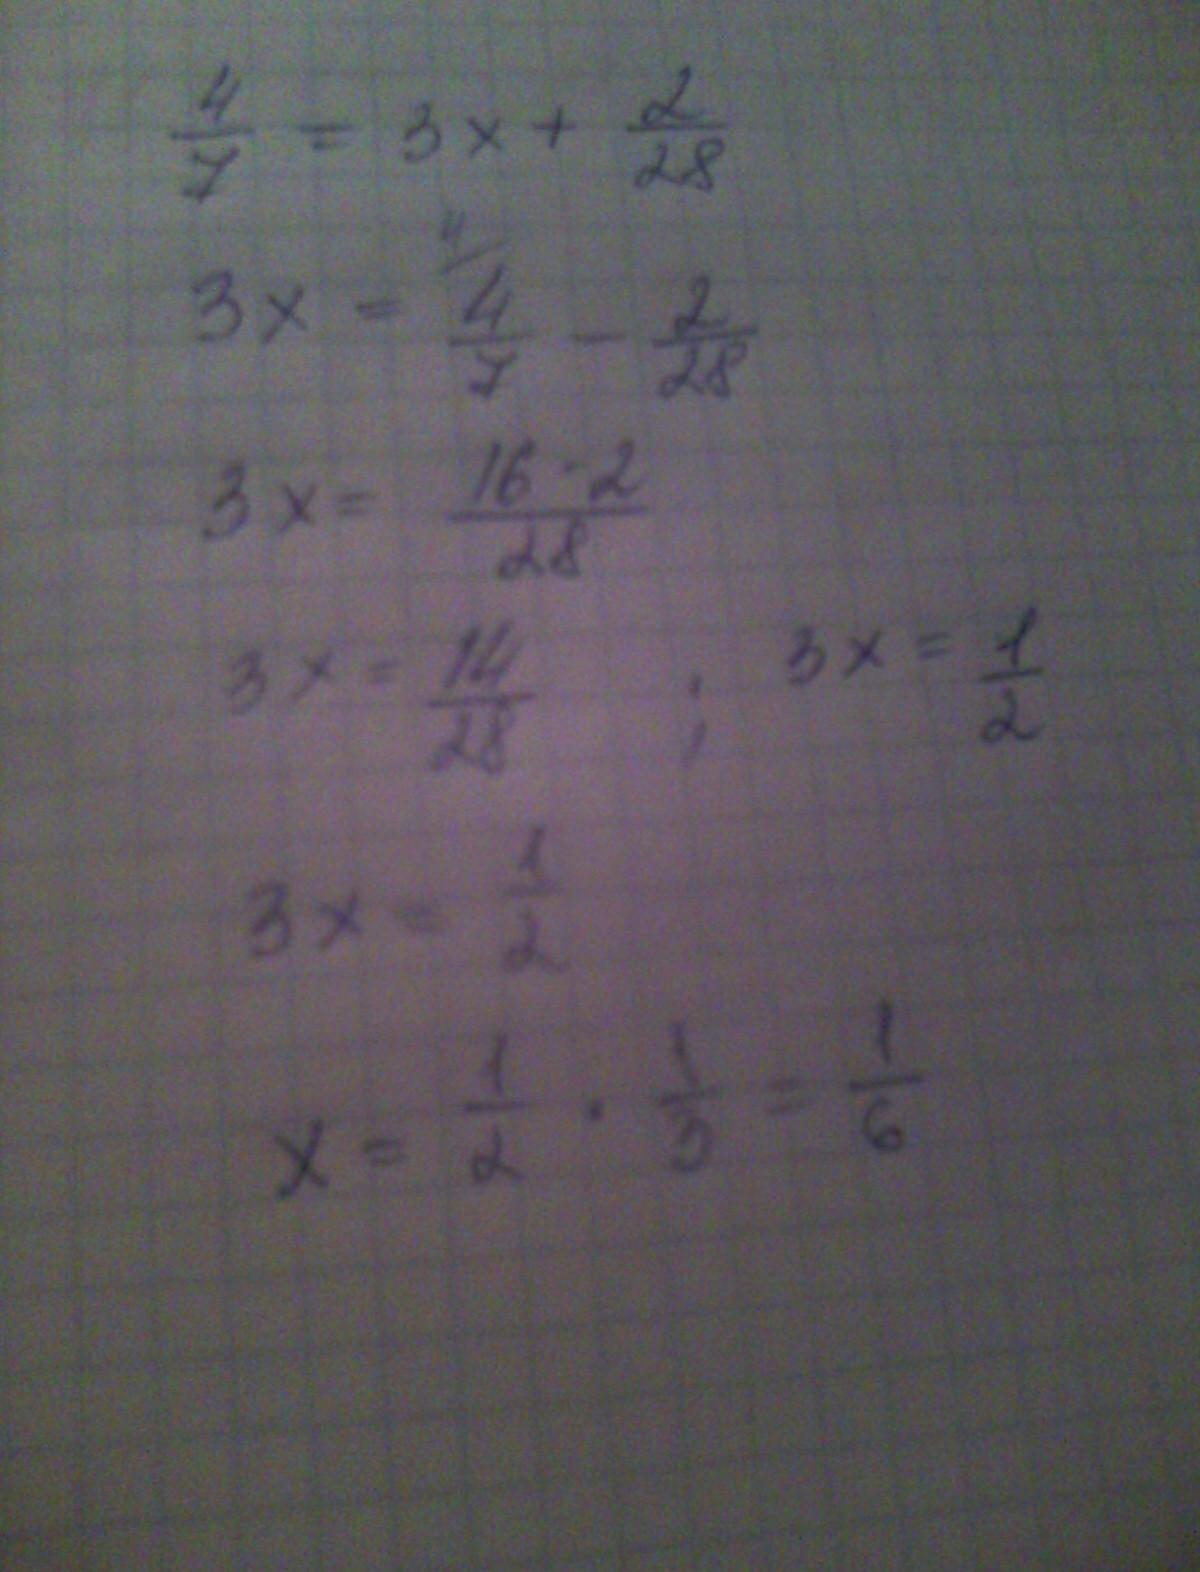 4/7 = 3x + 2/28
3x = 4/ 4/7 - 2/28
3x = 16-2/28
3x = 14/28 ; 3x = 1/2
3x = 1/2
x = 1/2 · 1/3 = 1/6